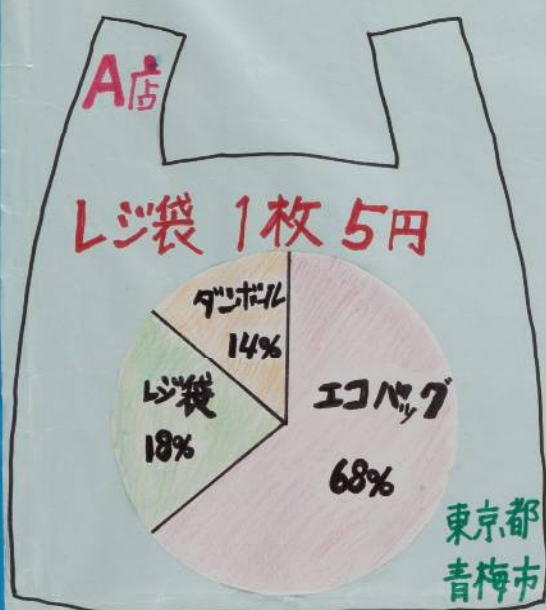 A店
レジ袋 1枚 5円
ダンボール
14%
レジ袋
18%
エコバッグ
68%
東京都
青梅市